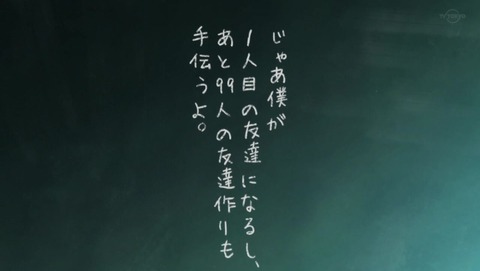 じゃあ僕が
1人目の友達になるし、
あと99人の友達作りも
手伝うよ。